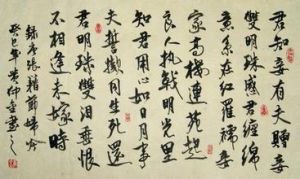 君知妾有夫贈妾
雙明珠感君纏綿
意系在紅羅襦妾
家高樓連苑起
良人執戟明光里
知君用心如日月事
夫誓擬同生死還
君明珠雙淚垂恨
不相逢未嫁時
錄唐張籍節婦吟
癸巳年黄仲金書之